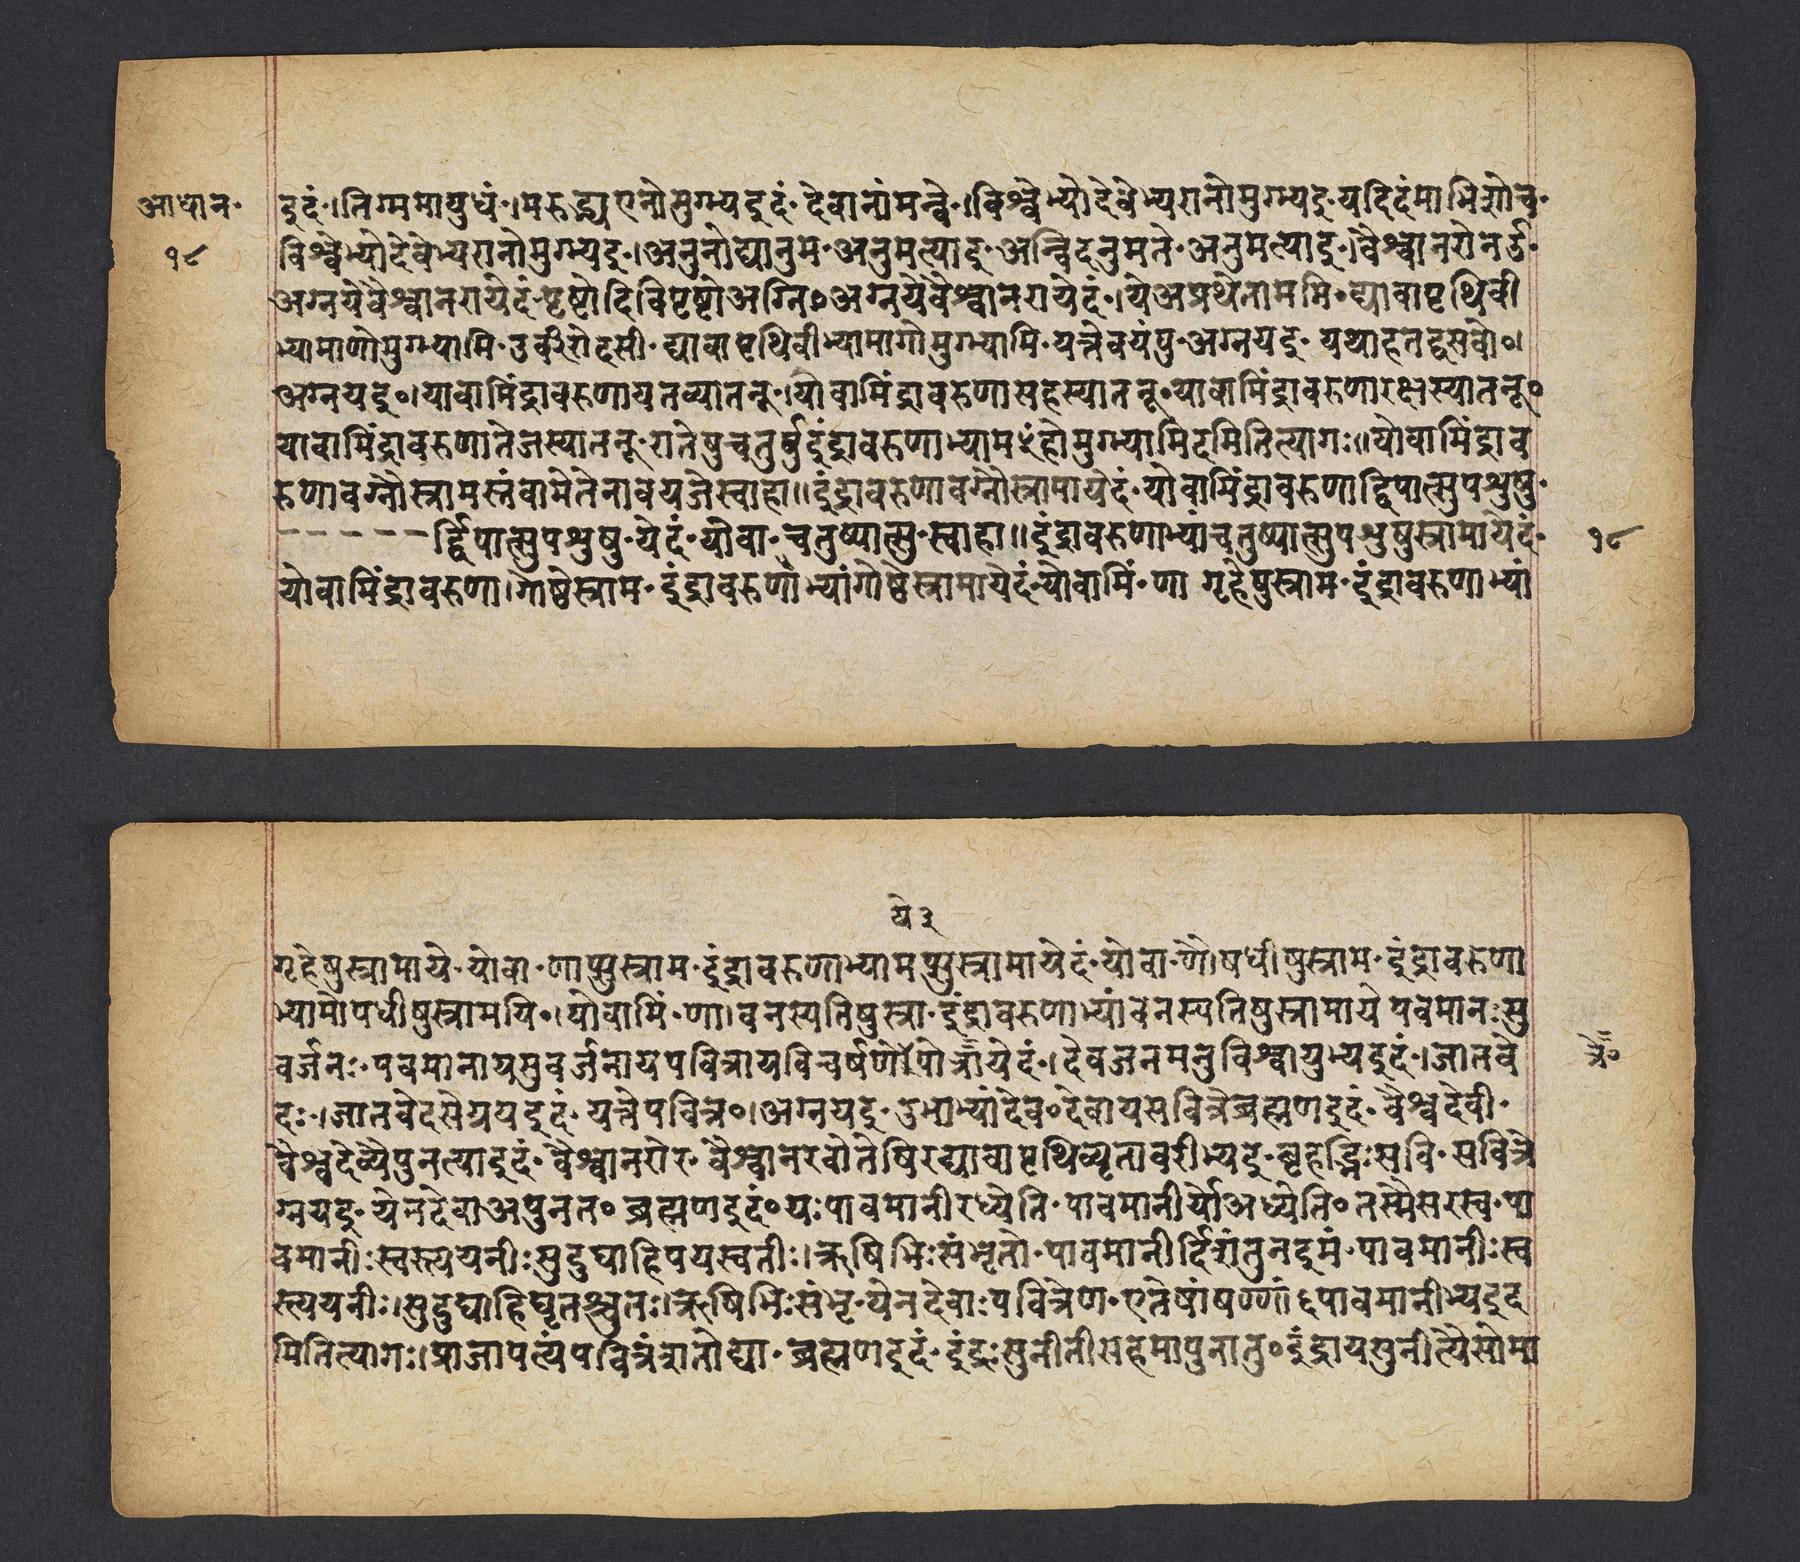 आधान॰
१८
दुदं॰।तिग्ममायुधं॰।मरुद्भ्य एनोमुग्भ्यदुदं॰ देवानांमन्वे॰।विश्वेभ्योदेवेभ्यरानोमुग्भ्यदु॰यदिदंमाभिशोच॰
विश्वेभ्योदेवेभ्यरानोमुग्भ्यदु॰।अनुनोद्यानुम॰अनुमत्यादु॰अन्विदनुमते॰अनुमत्यादु॰।वैश्वानरोनर्ऊ॰
अग्नयेवैश्वानरायेदं॰पृष्टोदिविपृष्टोअग्नि॰अग्नयेवैश्वानरायेदं॰।येअप्रथेताममि॰द्यावापृथिवी
भ्यामाणोमुग्भ्यामि॰उर्वीरोदसी॰द्यावापृथिवीभ्यामागोमुग्भ्यामि॰यत्तेवयंपु॰अग्नयदु॰ यथाहतद्वसवो॰।
अग्नयदु॰।यावामिंद्रावरुणायतव्यातनू॰।यावामिंद्रावरुणासहस्यातनू॰यावामिंद्रावरुणारक्षस्यातनू॰
यावामिंद्रावरुणातेजस्यातनू॰रातेषुचतुर्षुदुंद्रावरुणाभ्यामꣳहोमुग्भ्यामिदमितित्यागः॥योवामिंद्राव
रुणावग्नौस्त्रामस्तंवामेतेनावयजेस्वाहा॥दुंद्रावरुणावग्नौस्त्रामायेदं॰योवामिंद्रावरुणाद्विपात्सुपशुषु॰
– – – – –र्द्विपात्सुपशुषु॰येदं॰योवा॰चतुष्पात्सु॰स्वाहा॥दुंद्रावरुणाभ्यांचतुष्पात्सुपशुषुस्त्रामायेदं॰ १८
योवामिंद्रावरुणा।गोष्ठेस्त्राम॰दुंद्रावरुणाभ्यांगोष्ठेस्त्रामायेदं॰योवामिं॰णा गृहेषुस्त्राम॰दुंद्रावरुणाभ्यां
ये३
गृहेषुस्त्रामाये॰योवा॰णाप्सुस्त्राम॰दुंद्रावरुणाभ्यामप्सुस्त्रामायेदं॰योवा॰णौषधीषुस्त्राम॰दुंद्रावरुणा
भ्यामोषधीषुस्त्रामायि॰।योवामिं॰णा।वनस्पतिषुस्त्रा॰दुंद्रावरुणाभ्यांवनस्पतिषुस्त्रामाये पवमानःसु
वर्जनः॰पवमानायसुवर्जनायपवित्रायविचर्षणेपोत्रायेदं॰।देवजनमनुविश्वायुभ्यदुदं॰।जातवे
दः॰।जातवेदसेग्नयदुदं॰ यत्तेपवित्र॰।अग्नयदु॰उभाभ्यांदेव॰देवायसवित्रेब्रह्मणदुदं॰वैश्वदेवी॰
वैश्वदेव्यैपुनत्यादुदं॰वैश्वानरोर॰वैश्वानरवातेषिरद्यावापृथिव्यृतावरीभ्यदु॰बृहद्भिःसवि॰सवित्रे
ग्नयदु॰येनदेवाअपुनत॰ब्रह्मणदुदं॰यःपावमानीरध्येति॰पावमानीर्योअध्येति॰तस्मैसरस्व॰पा
वमानीःस्वस्त्ययनीःसुदुघाहिपयस्वतीः।ऋषिभिःसंभृतो॰पावमानीर्दिशंतुनदुमं॰पावमानीःस्व
स्त्ययनीः।सुदुघाहिघृतश्चुतः।ऋषिभिःसंभृ॰येनदेवाःपवित्रेण॰एतेषांषण्णां६पावमानीभ्यदुद
मितित्यागः।प्राजापत्यंपवित्रंशतोद्या॰ब्रह्मणदुदं॰दुंद्रःसुनीतीसहमापुनातु॰दुंद्रायसुनीत्यैसोमा